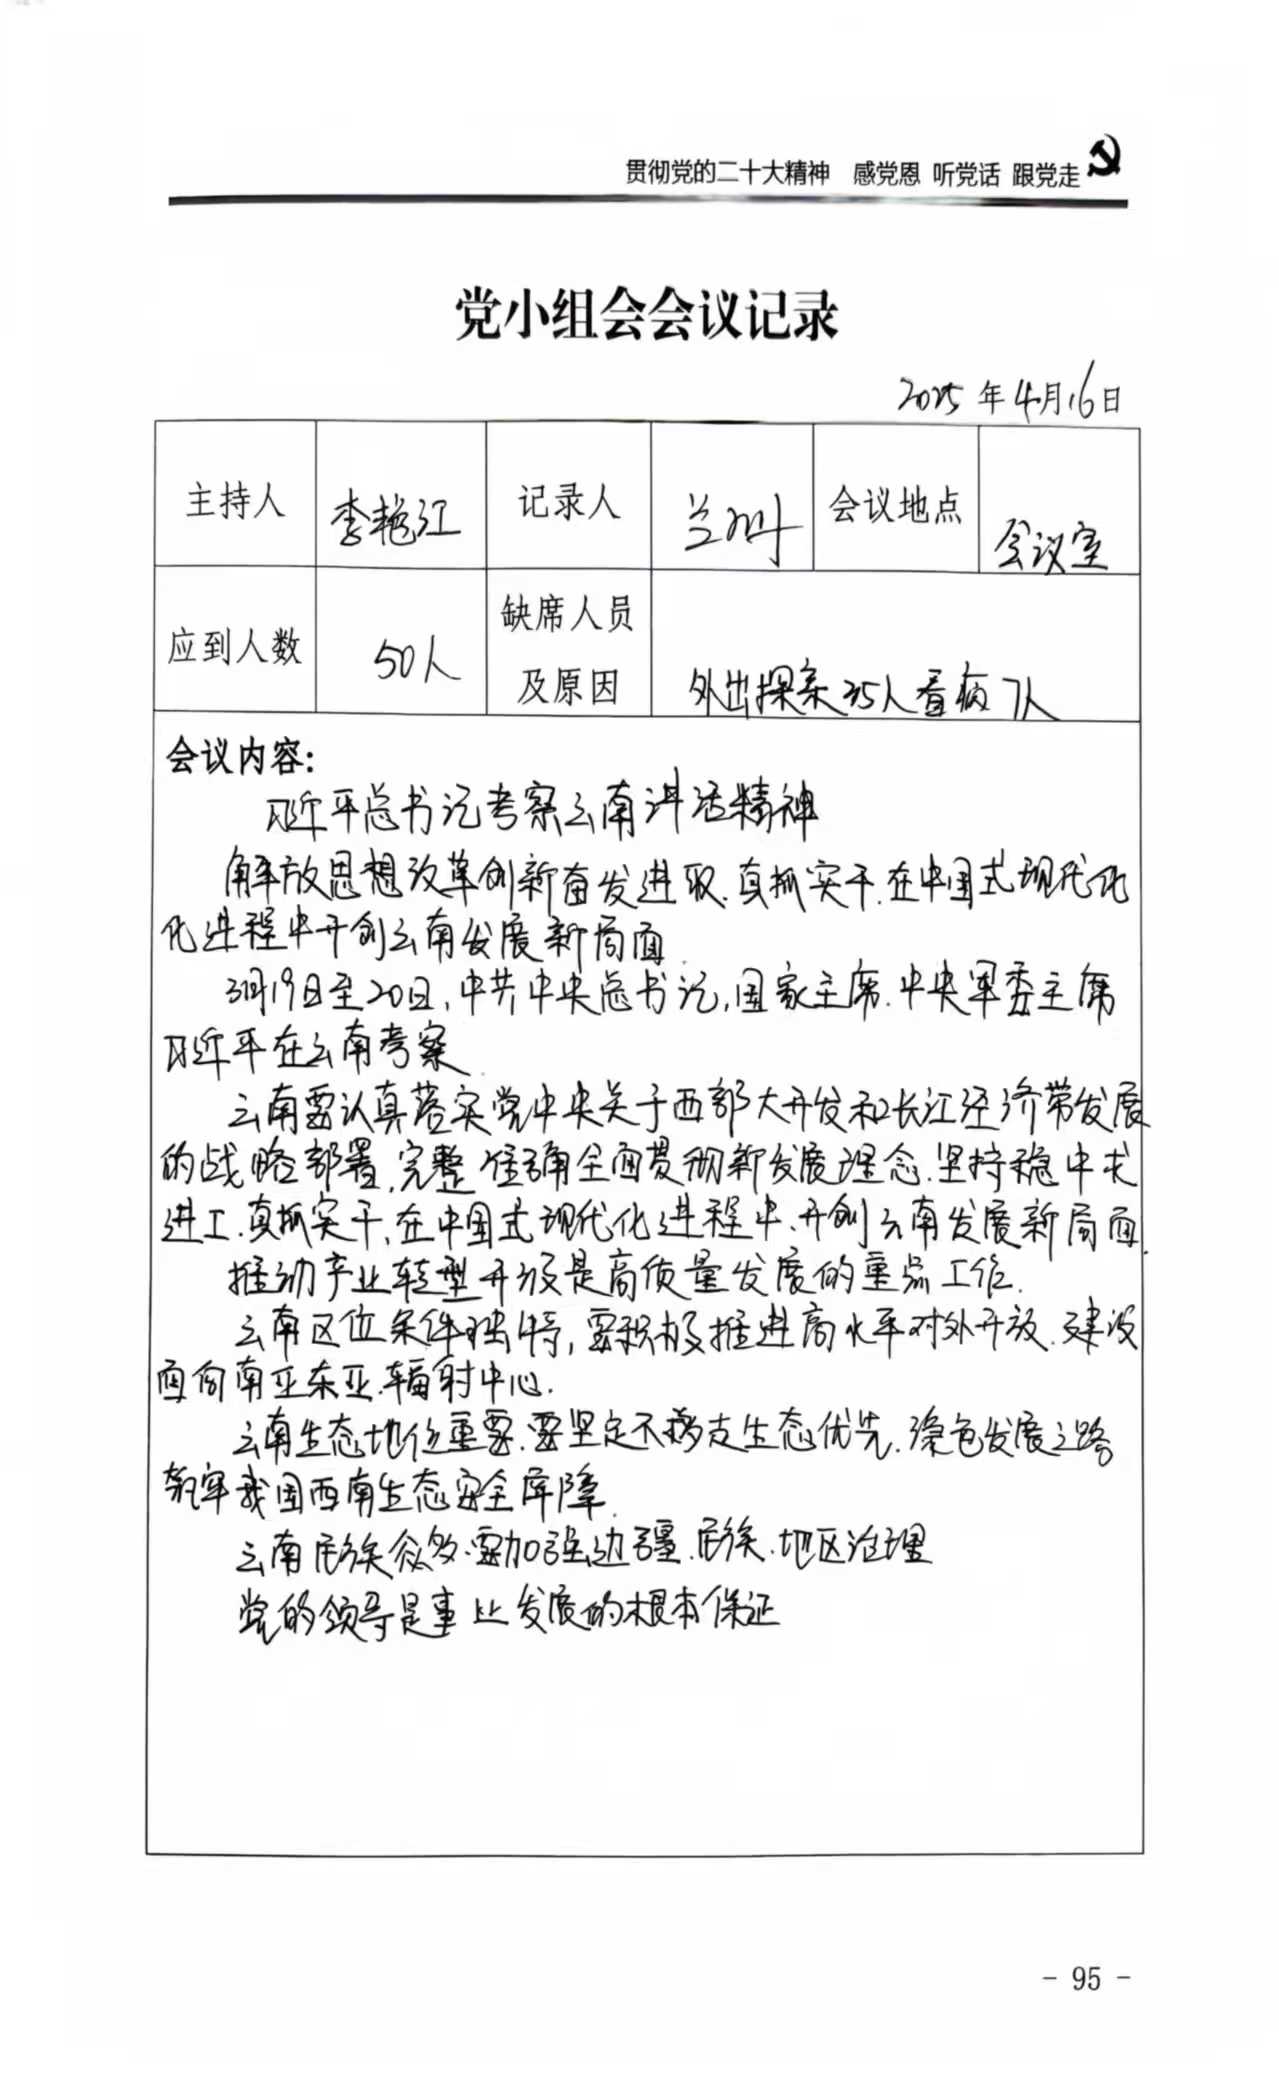 贯彻党的二十大精神 感党恩 听党话 跟党走
党小组会会议记录
2025年4月16日
主持人 李艳江 记录人 兰 会议地点 会议室
应到人数 50人 缺席人员及原因 外出探亲35人看病7人
会议内容：
习近平总书记考察云南讲话精神
解放思想改革创新奋发进取.真抓实干.在中国式现代化
化进程中开创云南发展新局面
3月19日至20日,中共中央总书记,国家主席.中央军委主席
习近平在云南考察
云南要认真落实党中央关于西部大开发和长江经济带发展
的战略部署,完整准确全面贯彻新发展理念.坚持稳中求
进工.真抓实干,在中国式现代化进程中.开创云南发展新局面.
推动产业转型升级是高质量发展的重点工作.
云南区位条件独特,要积极推进高水平对外开放.建设
面向南亚东亚.辐射中心.
云南生态地位重要.要坚定不移走生态优先.绿色发展之路
筑牢我国西南生态安全屏障.
云南民族众多.要加强边疆.民族.地区治理
党的领导是事业发展的根本保证
- 95 -